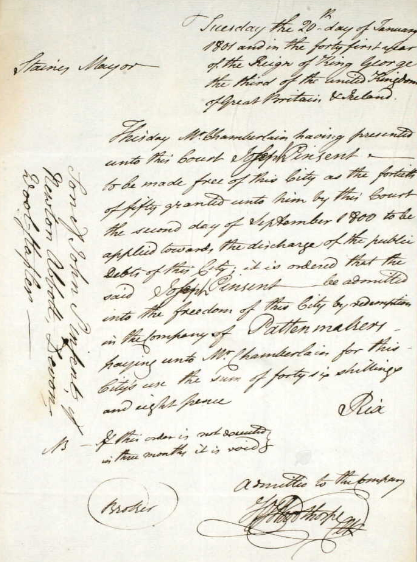 Tuesday the 20th day of January
1801 and in the forty first year
of the Reign of King George
the third of the united Kingdom
of Great Britain & Ireland.
Staines Mayor
This day Mr Chamberlain having presented
unto this Court Joseph Pinsent
to be made free of this City as the fortieth
of fifty granted unto him by this Court
the second day of September 1800 to be
applied towards the discharge of the public
Debts of this City, it is ordered that the
said Joseph Pinsent be admitted
into the freedom of this City by redemption
in the Company of Pattenmakers
paying unto Mr Chamberlain for this
City's use the sum of forty six shillings
and eight pence
Rix
Son of John Pinsent of
Newton Abbott Devon
Woolstapler
NB If this order is not executed
in three months it is void
admitted to the Company
Broker